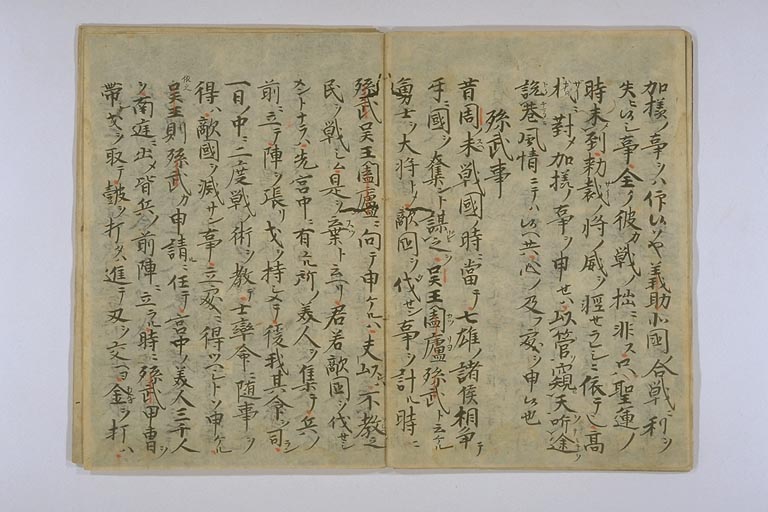 加様ノ事ヲハ作候ソヤ義助小國ノ合戦ニ利ヲ
失候シ事全ク彼カ戦ノ拙ニ非ス只聖運ノ
時未到勅裁ノ将ノ威ヲ軽セラレシニ依テ也高
対メ加様ノ事ヲ申セハ以管窺天听途
説巷風情ニテハ候ヘ共心ノ及フ処ヲ申候也
孫武事
昔周末戦國ノ時ニ當テ七雄ノ諸侯相争テ
互ニ國ヲ奪ント謀之呉王闔廬孫武ト云ケル
勇士ヲ大将トメ敵國ヲ伐セン事ヲ計ル時ニ
孫武呉王闔廬ニ向テ申ケルハ夫以不教之
民ヲ戦シム是ヲ棄ト云リ君若敵國ヲ伐セ
メントナラハ先宮中ニ有ル所ノ美人ヲ集テ兵ノ
前ニ立テ陣ヲ張リ戈ヲ持シメテ後我其命ヲ司ラン
一日ノ中ニ二度戦ノ術ヲ教テ士率命ニ随事ヲ
得ハ敵國ヲ滅サン事立処ニ得ツヘシトソ申ケル
呉王則孫武カ申請ニ任テ宮中ノ美人三千人
ヲ南庭ニ出メ皆兵ノ前陣ニ立ラル時ニ孫武甲冑ヲ
帯シ戈ヲ取テ鼓ヲ打タハ進テ刃ヲ交ヨ金ヲ打ハ